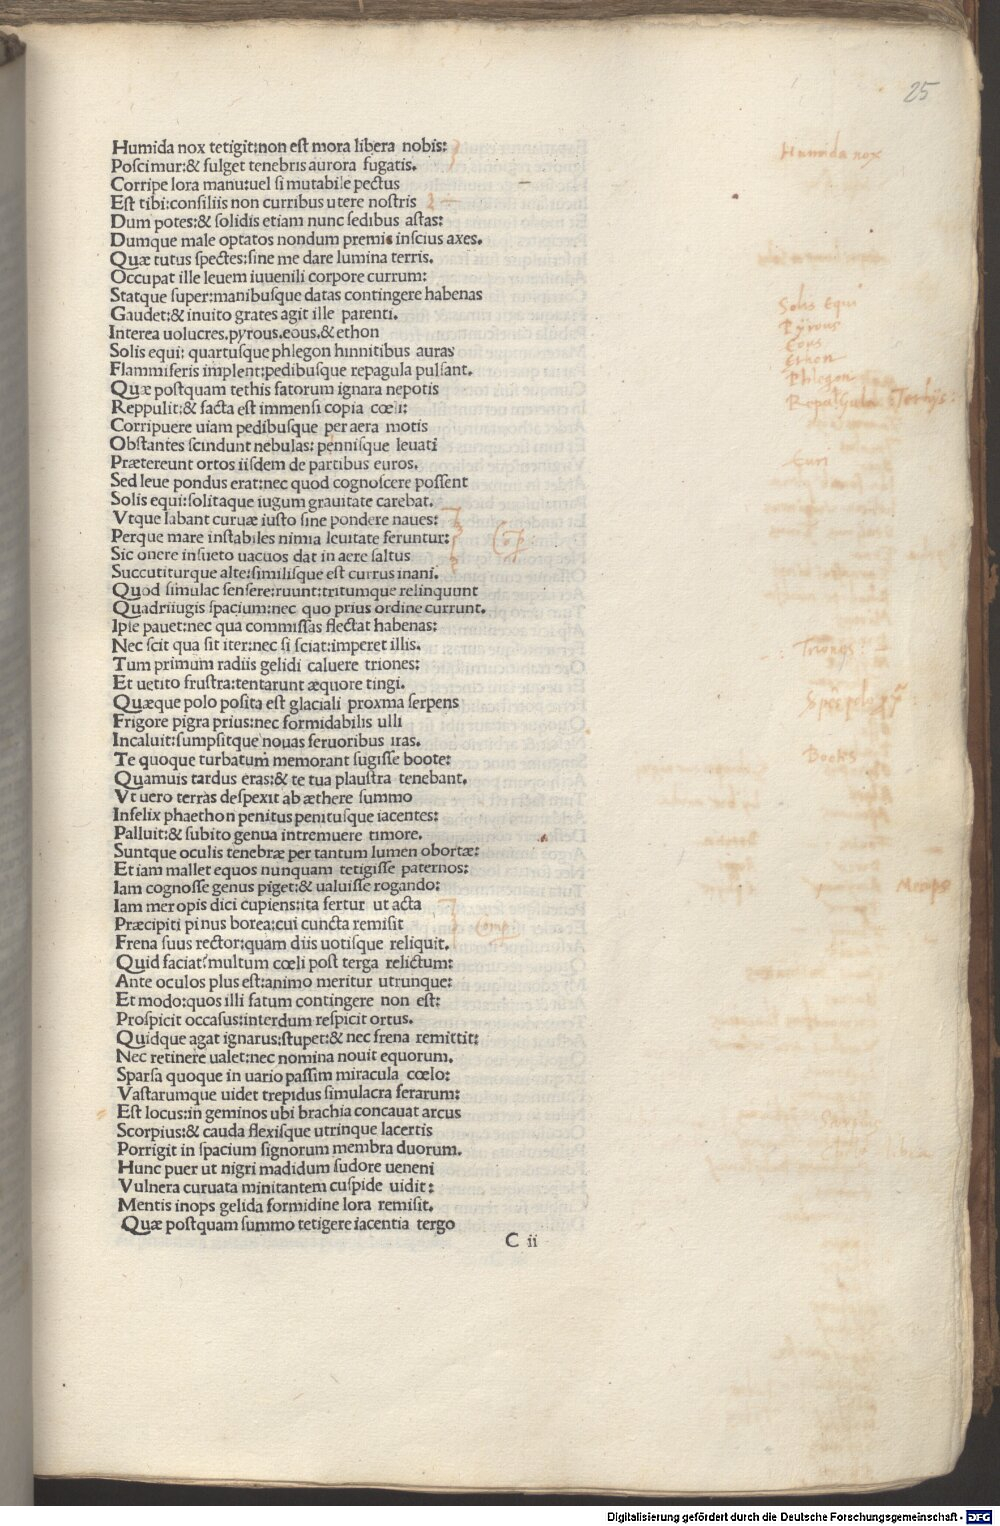 25
Humida nox tetigit:non est mora libera nobis:
Poscimur:& fulget tenebris aurora fugatis.
Corripe lora manu:uel si mutabile pectus
Est tibi:consiliis non curribus utere nostris
Dum potes:& solidis etiam nunc sedibus astas:
Dumque male optatos nondum premis inscius axes.
Quæ tutus spectes:sine me dare lumina terris.
Occupat ille leuem iuuenili corpore currum:
Statque super:manibusque datas contingere habenas
Gaudet:& inuito grates agit ille parenti.
Interea uolucres.pyrous.eous.& ethon
Solis equi: quartusque phlegon hinnitibus auras
Flammiferis implent:pedibusque repagula pulsant.
Quæ postquam tethis fatorum ignara nepotis
Reppulit:& facta est immensi copia cœli:
Corripuere uiam pedibusque per aera motis
Obstantes scindunt nebulas: pennisque leuati
Prætereunt ortos iisdem de partibus euros.
Sed leue pondus erat:nec quod cognoscere possent
Solis equi:solitaque iugum grauitate carebat.
Vtque labant curuæ iusto sine pondere naues:
Perque mare instabiles nimia leuitate feruntur:
Sic onere insueto uacuos dat in aere saltus
Succutiturque alte:similisque est currus inani.
Quod simulac sensere:ruunt:tritumque relinquunt
Quadriiugis spacium:nec quo prius ordine currunt.
Ipse pauet:nec qua commissas flectat habenas:
Nec scit qua sit iter:nec si sciat:imperet illis.
Tum primum radiis gelidi caluere triones:
Et uetito frustra:tentarunt æquore tingi.
Quæque polo posita est glaciali proxma serpens
Frigore pigra prius:nec formidabilis ulli
Incaluit:sumpsitque nouas feruoribus iras.
Te quoque turbatum memorant fugisse boote:
Quamuis tardus eras:& te tua plaustra tenebant.
Vt uero terras despexit ab æthere summo
Infelix phaethon penitus penitusque iacentes:
Palluit:& subito genua intremuere timore.
Suntque oculis tenebræ per tantum lumen obortæ:
Et iam mallet equos nunquam tetigisse paternos:
Iam cognosse genus piget:& ualuisse rogando:
Iam meropis dici cupiens:ita fertur ut acta
Præcipiti pinus borea:cui cuncta remisit
Frena suus rector:quam diis uotisque reliquit.
Quid faciat?multum cœli post terga relictum:
Ante oculos plus est:animo meritur utrunque:
Et modo:quos illi fatum contingere non est:
Prospicit occasus:interdum respicit ortus.
Quidque agat ignarus:stupet:& nec frena remittit:
Nec retinere ualet:nec nomina nouit equorum.
Sparsa quoque in uario passim miracula cœlo:
Vastarumque uidet trepidus simulacra ferarum:
Est locus:in geminos ubi brachia concauat arcus
Scorpius:& cauda flexisque utrinque lacertis
Porrigit in spacium signorum membra duorum.
Hunc puer ut nigri madidum sudore ueneni
Vulnera curuata minitantem cuspide uidit:
Mentis inops gelida formidine lora remisit.
Quæ postquam summo tetigere iacentia tergo
C ii
Humida nox
Solis Equi
Pyrous
Eous
Ethon
Phlegon
Repagula Tethys:
Euri
Triones
Bootes
Merops
Scorpius
Digitalisierung gefördert durch die Deutsche Forschungsgemeinschaft - DFG